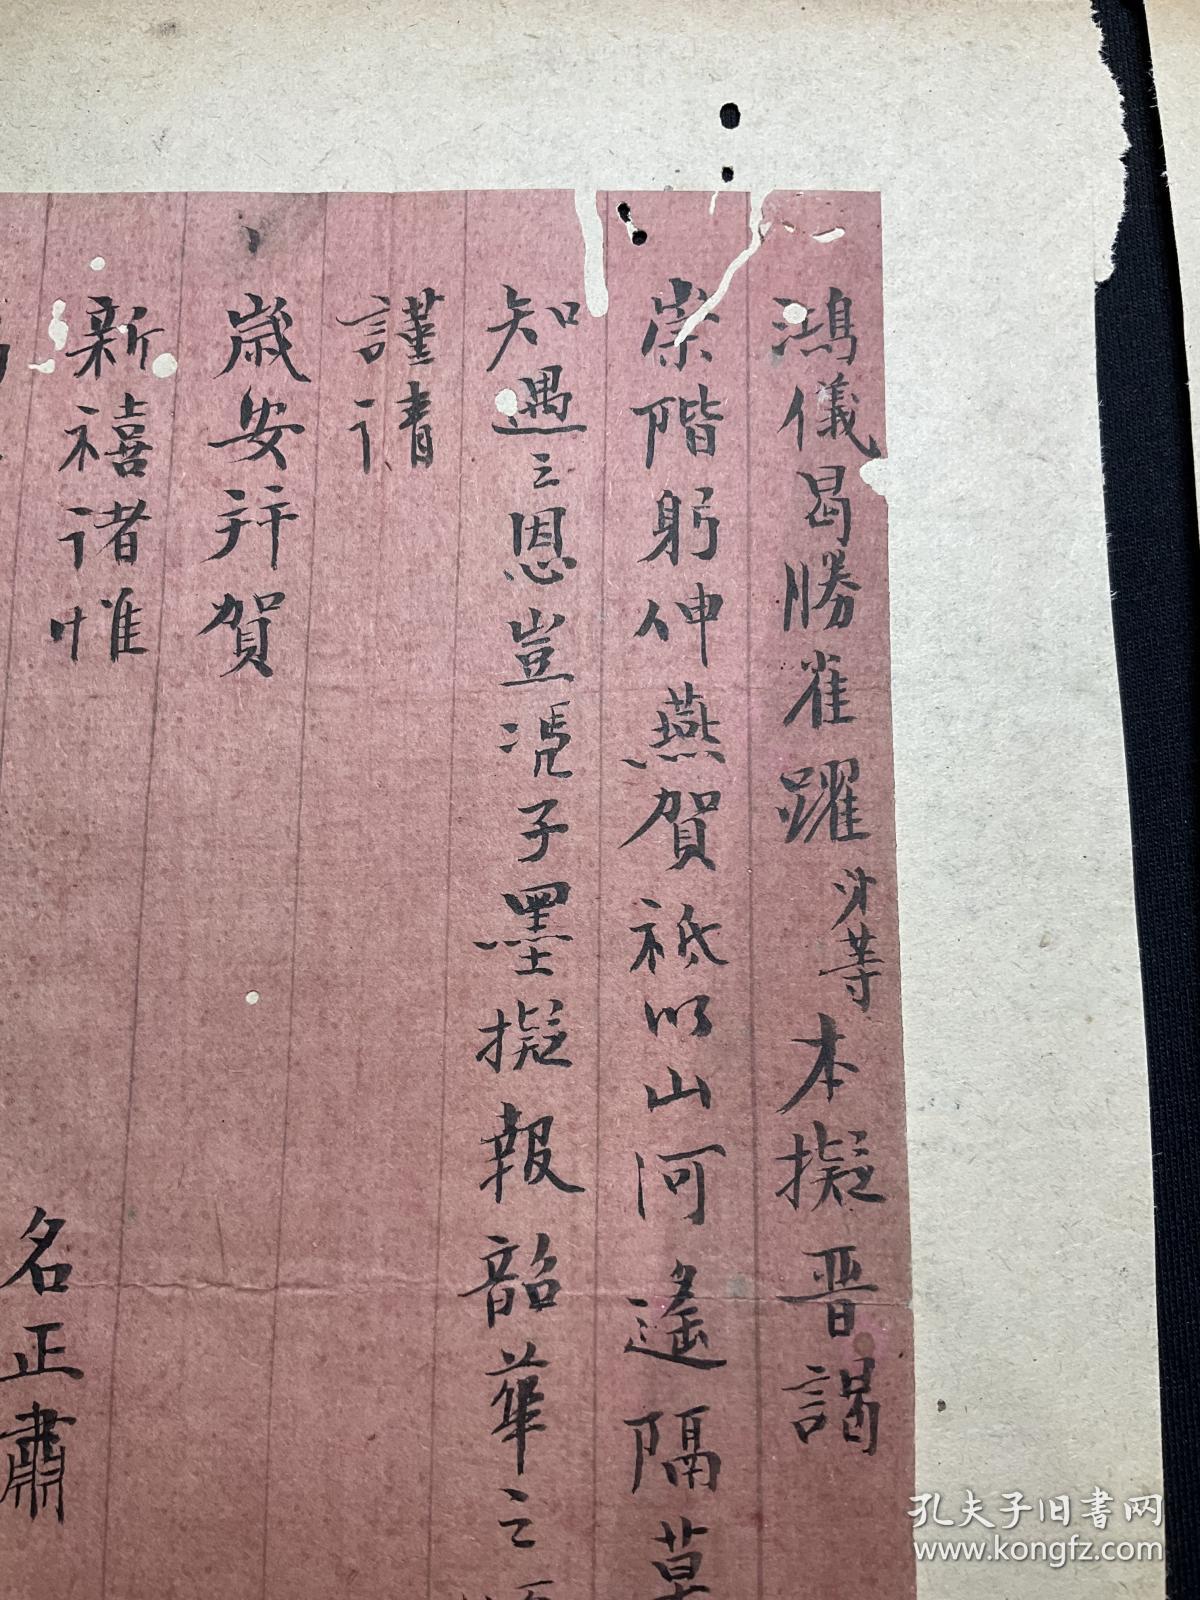 鴻儀曷勝雀躍弟等本擬晉謁
崇階躬伸燕賀祗以山河遙隔草
知遇之恩豈凴子墨擬報韶華之
謹請
歲安并賀
新禧諸惟
名正肅
孔夫子旧书网
www.kongfz.com